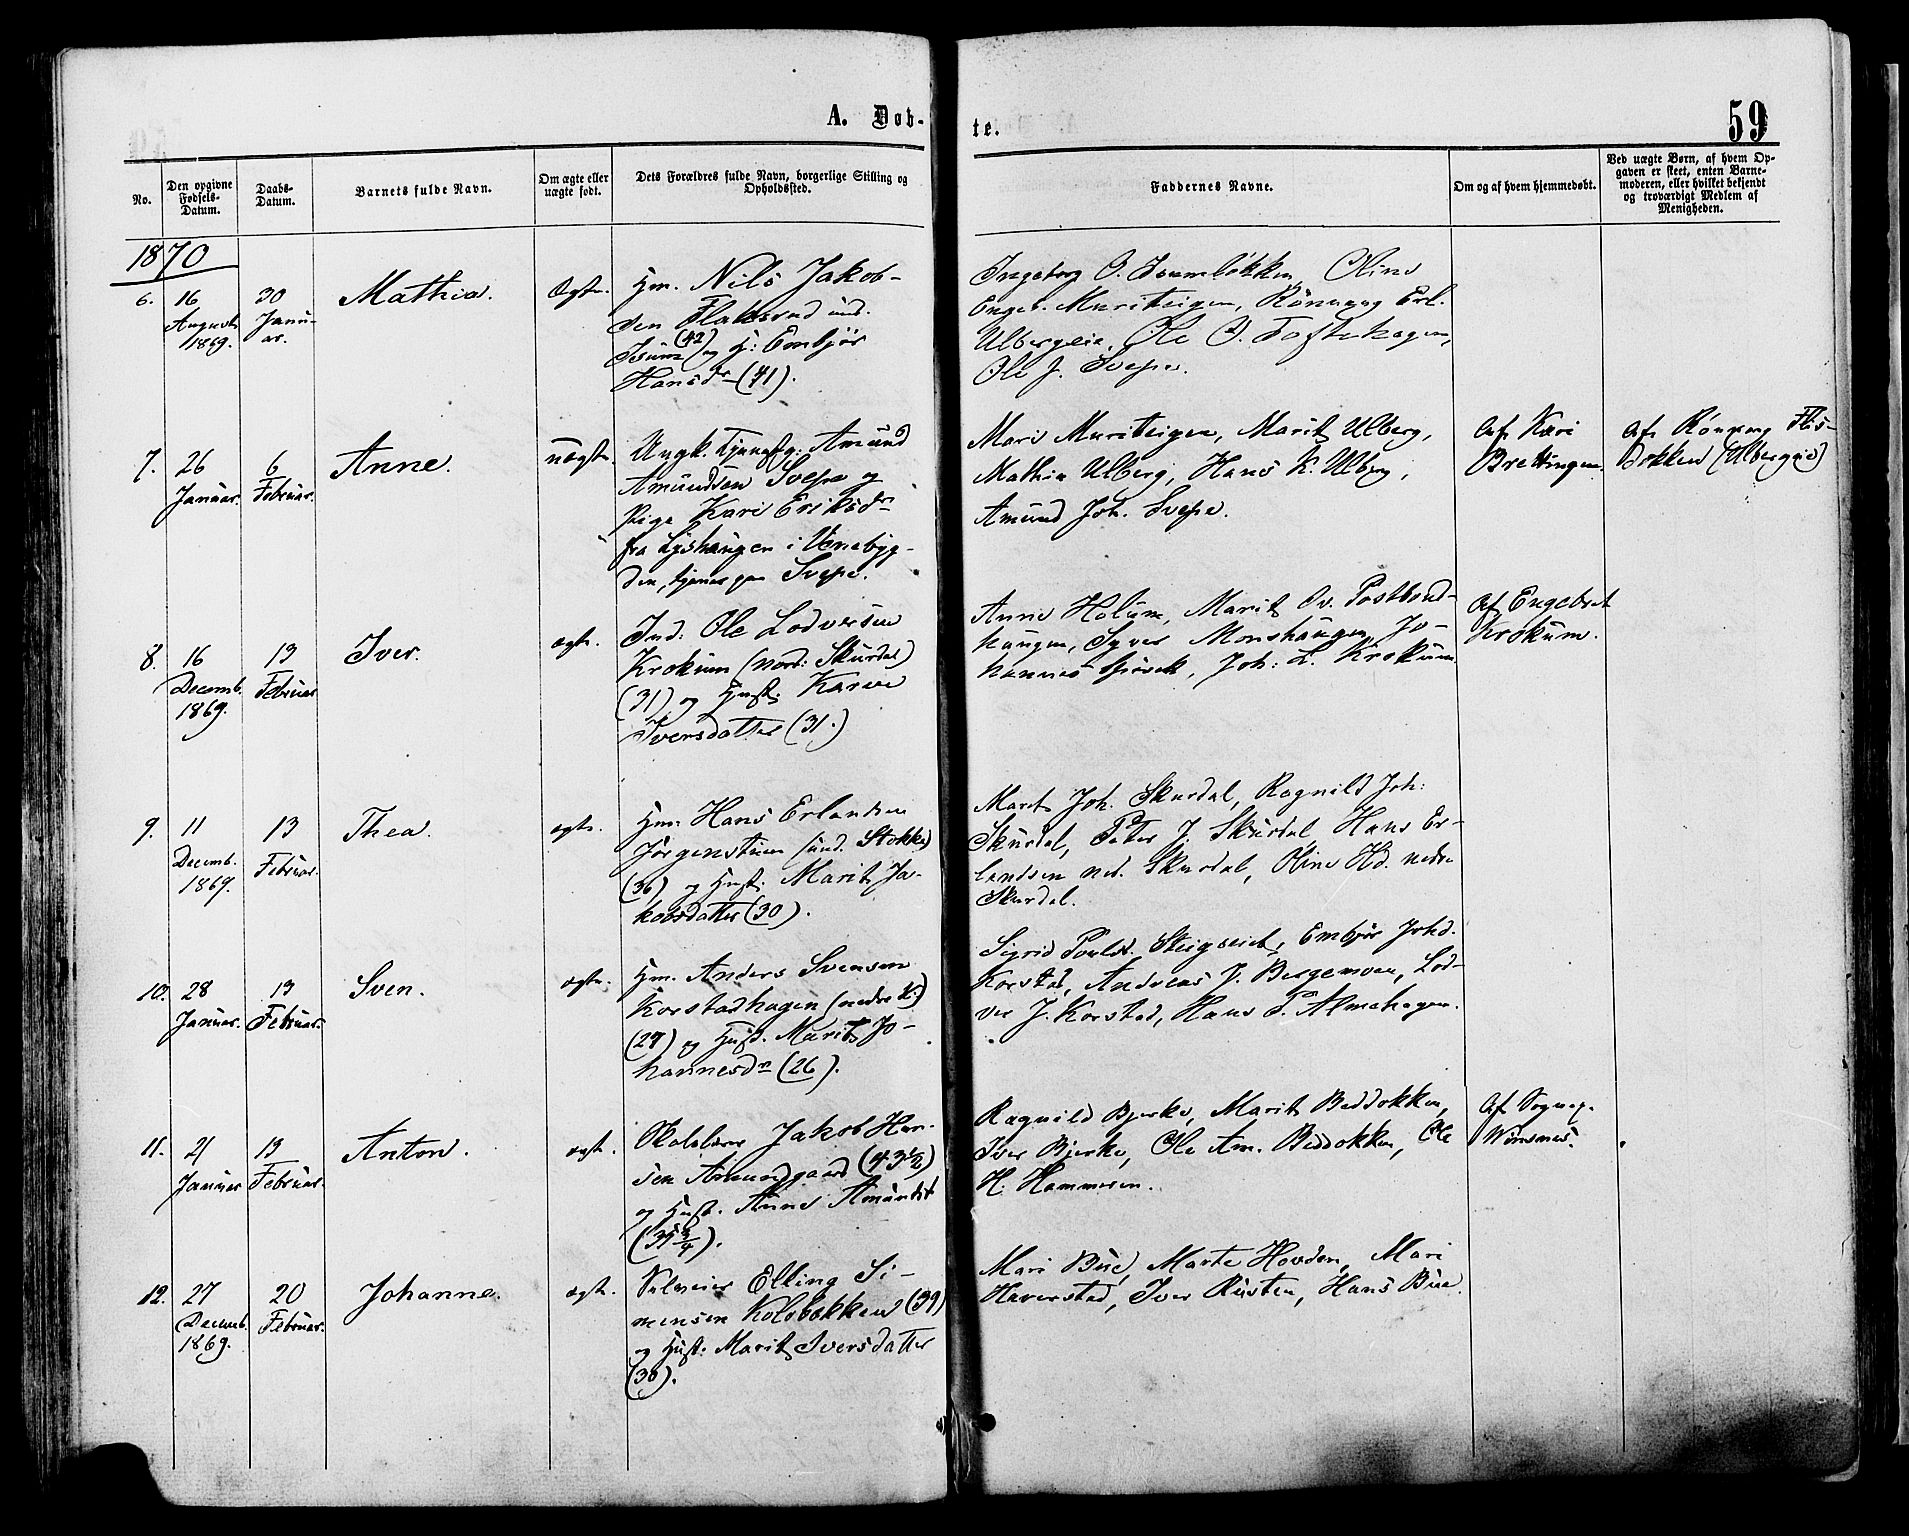 A. Døb-
te.
59
No.
Den opgivne
Fødsels-
Datum.
Daabs-
Datum.
Barnets fulde Navn.
Om ægte eller
uægte født.
Dets Forældres fulde Navn, borgerlige Stilling og
Opholdssted.
Faddernes Navne.
Om og af hvem hjemmedøbt.
Ved uægte Børn, af hvem Op-
gaven er skeet, enten Barne-
moderen, eller hvilket bekjendt
og troværdigt Medlem af
Menigheden.
1870
6.
16
August
1869.
30
Janu-
ar.
Mathia.
Ægte.
Hm. Nils Jakob-
sen
(42) og H: Embjør
Hansdr (41).
Ingeborg O. Oline
Engeb. Muriteigen, Rönnaug Erl.
Ulbergeie, Ole O. Toftehagen,
Ole J. Svepe.
7.
26
Januar.
6
Februar.
Anne.
uægte.
Ungk. Amund
Amundsen Svepe og
Pige Kari Eriksdr
fra Lyshaugen i Venebyg-
den, tjener paa Svepe.
Mari Muriteigen, Marit Ulberg,
Mathia Ulberg, Hans K. Ulberg,
Amund Joh. Svepe.
Af Kari
Brettingen.
Af Rönnaug Flis-
bakken (Ulbergeie)
8.
16
Decemb.
1869.
13
Februar
Iver.
ægte.
Ind: Ole Lodversen
Krokum (nord: Skurdal)
(31) og Hust: Karen
Iversdatter (31.)
Anne Holum, Marit Ov.
haugen, Syver Monshaugen, Jo-
hannes Joh: L. Krokum
Af Engebret
Krokum.
9.
11
Decemb.
1869.
13
Februar.
Thea.
ægte.
Hm. Hans Erlandsen
Jörgenstuen (und. Stokke)
(36) og Hust: Marit Ja-
kobsdatter (30).
Marit Joh. Skurdal, Ragnild Joh:
Skurdal, Peter J. Skurdal, Hans Er-
landsen ned. Skurdal, Oline Hd. nedre
Skurdal.
10.
28
Januar.
13
Februar.
Sven.
ægte.
Hm. Anders Svensen
Korstadhagen (nedre K:)
(27) og Hust. Marit Jo-
hannesdr (26).
Sigrid Embjør Johd.
Korstad, Andreas J. Bergemoen, Lod-
ver J. Korstad, Hans P. Almehagen.
11.
21
Januar
13
Februar.
Anton.
ægte.
Skolelærer Jakob Han-
sen Amundgaard (43½)
og Hust. Anne Amundsd
(35¾).
Ragnild Bjerke, Marit Beddokken,
Iver Bjerke, Ole Am. Beddokken, Ole
H. Hammeren.
Af Sognep.
12.
27
Decemb.
1869.
20
Februar.
Johanne.
ægte.
Selveier Elling Si-
mensen Kolobakken (39)
og Hust: Marit Iversdatter
(30).
Mari Bue, Marte Hovden, Mari
Haverstad, Iver Rusten, Hans Bue.